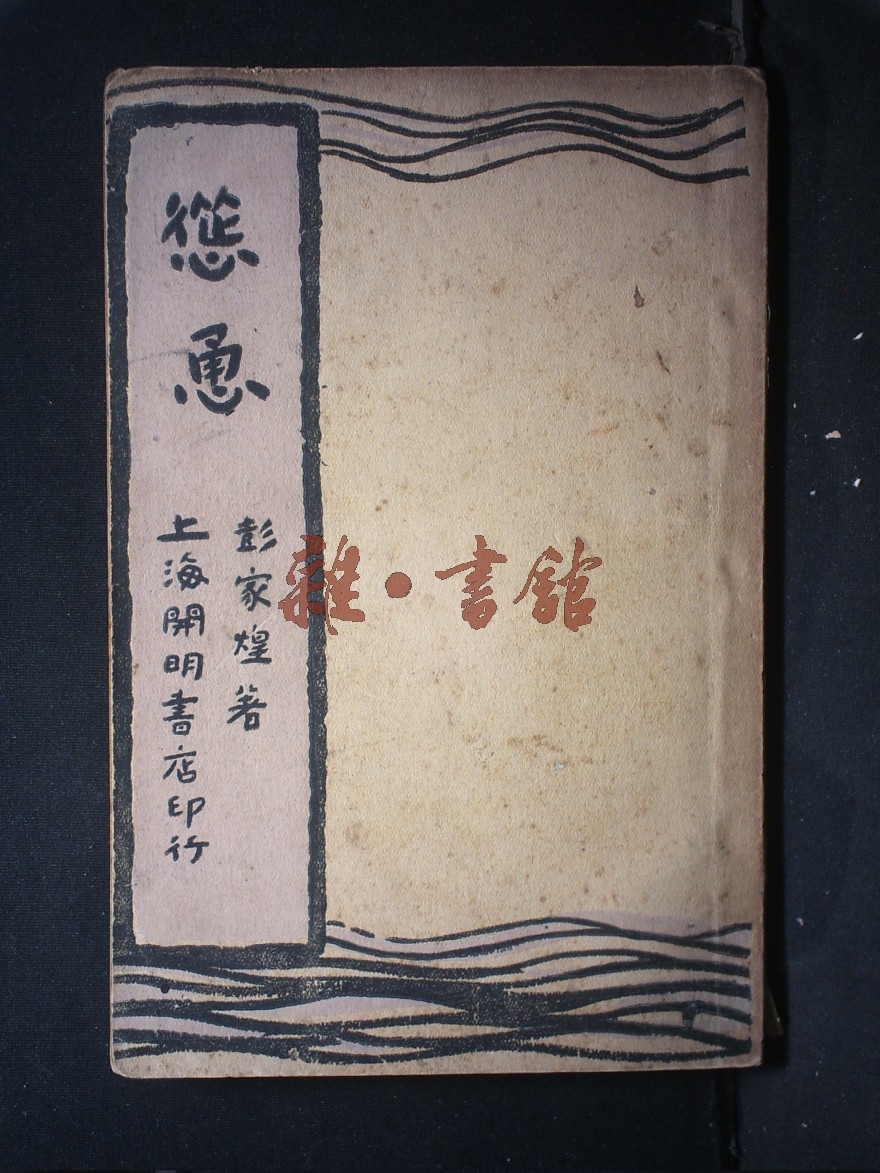 慫恿
彭家煌著
上海開明書店印行
雜·書館